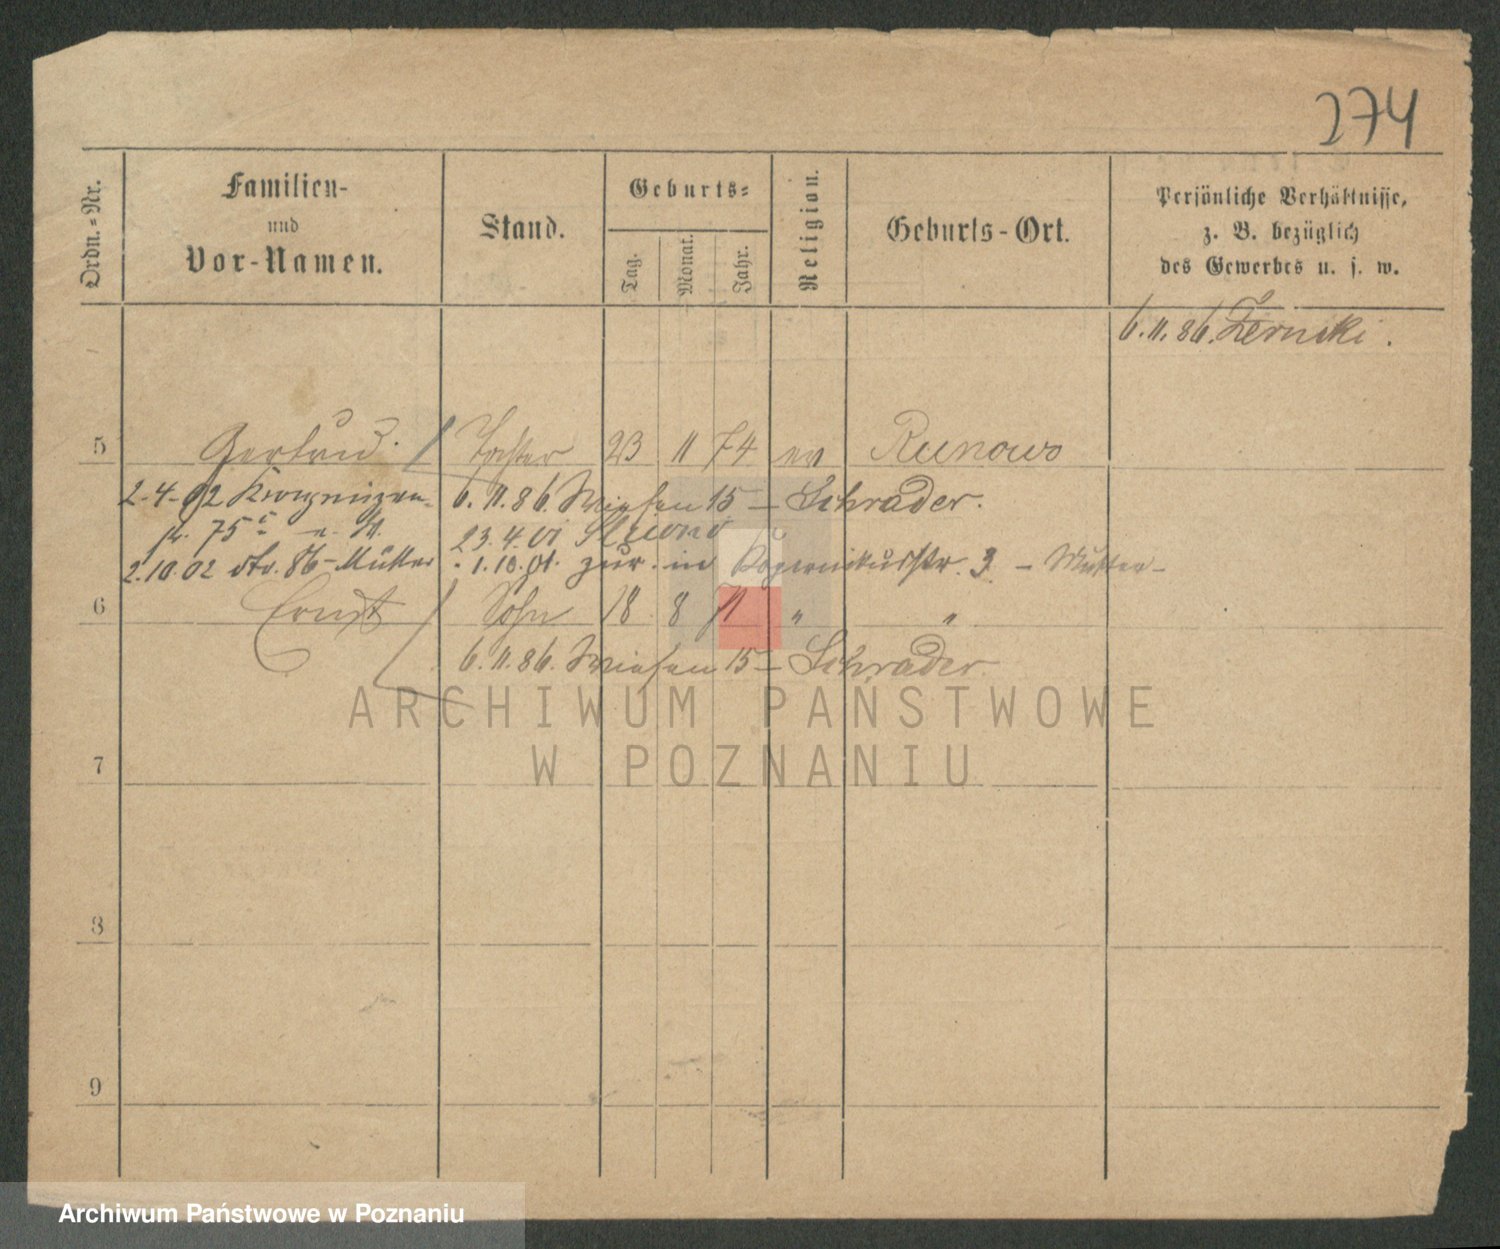 274
Ordn.-Nr.
Familien-
und
Vor-Namen.
Stand.
Geburts-
Tag.
Monat.
Jahr.
Religion.
Geburts-Ort.
Persönliche Verhältnisse,
z. B. bezüglich
des Gewerbes u. s. w.
6.11.86. Zernicki.
5 Gertrud. Tochter 23 11 74 ev Runowo
2-4-02
6.11.86. Wiesen 15 - Schrader.
75
23.4.01
2.10.02 str. 86 - Mutter
1.10.01. zur. in Kopernikusstr. 3 - Mutter -
6 Ernst Sohn 18 8 " "
6.11.86. Wiesen 15 - Schrader.
ARCHIWUM PAŃSTWOWE
W POZNANIU
7
8
9
Archiwum Państwowe w Poznaniu